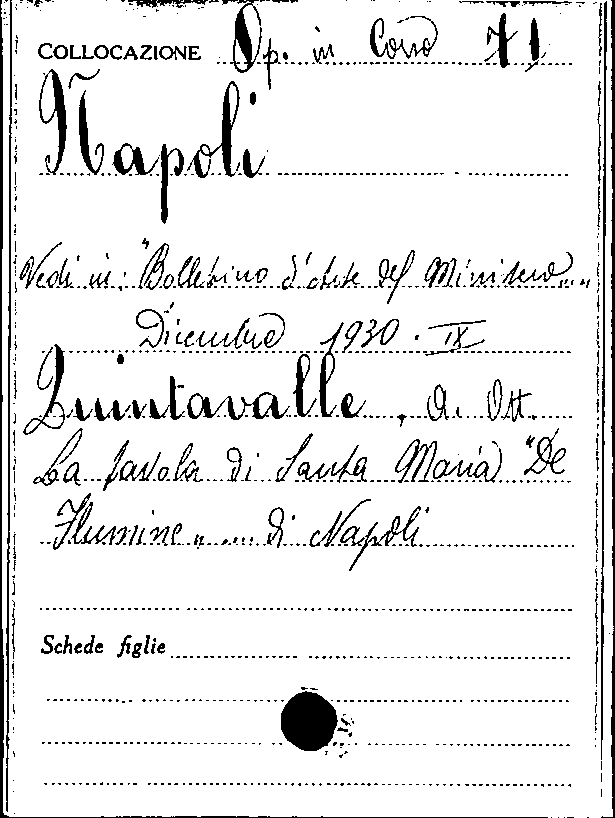 COLLOCAZIONE Op. in Corso 71
Napoli
Vedi in: "Bolletino d'arte del Ministero...."
Dicembre 1930 . IX
Quintavalle , A. Ott.
La tavola di Santa Maria "De
Flumine" .... di Napoli
Schede figlie